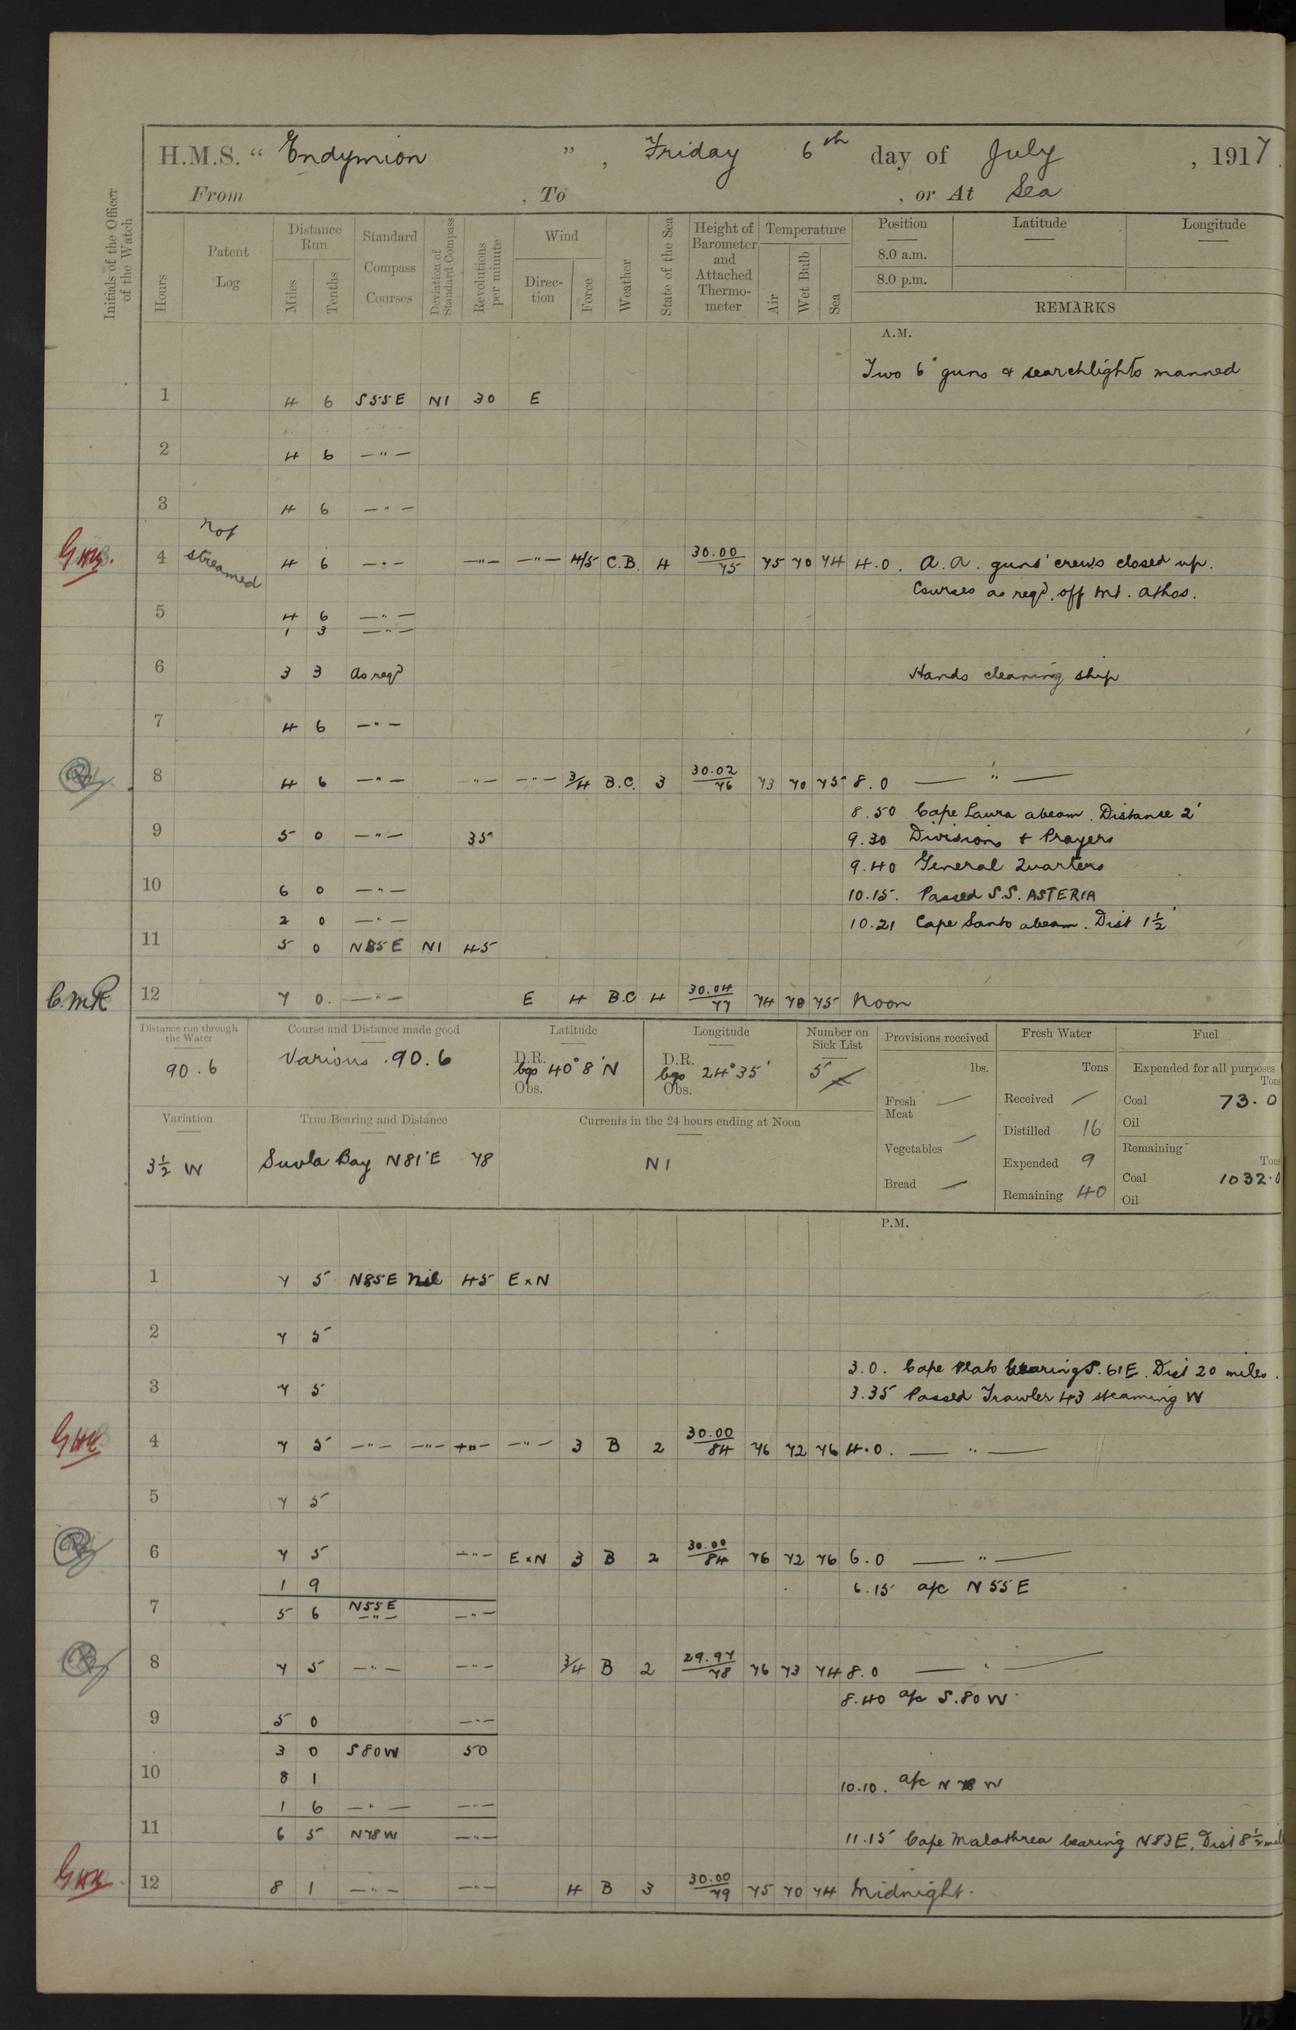 H.M.S. “ Endymion ”, Friday 6th day of July, 1917.
From , To , or At Sea
Initials of the Officer of the Watch
Hours
Patent Log
Distance Run
Miles
Tenths
Standard Compass Courses
Deviation of Standard Compass
Revolutions per minute
Wind
Direction
Force
Weather
State of the Sea
Height of Barometer and Attached Thermometer
Temperature
Air
Wet Bulb
Sea
Position Latitude Longitude
8.0 a.m.
8.0 p.m.
REMARKS
A.M.
Two 6" guns & searchlights manned
1 4 6 S55E N1 30 E
2 4 6 —"—
3 4 6 —"—
not streamed
4 4 6 —"— —"— —"— 4/5 C.B. 4 30.00/75 75 70 74 4.0. A.A. guns' crews closed up.
Courses as reqd. off Mt. Athos.
5 4 6 —"—
1 3 —"—
6 3 3 As reqd Hands cleaning ship
7 4 6 —"—
8 4 6 —"— —"— —"— 3/4 B.C. 3 30.02/76 73 70 75 8.0 —"—
8.50 Cape Laura abeam. Distance 2'
9 5 0 —"— 35 9.30 Divisions + Prayers
9.40 General Quarters
10 6 0 —"— 10.15. Passed S.S. ASTERIA
2 0 —"— 10.21 Cape Santo abeam. Dist 1½'
11 5 0 N85E N1 45
C.M.R. 12 7 0. —"— E 4 B.C 4 30.04/77 74 70 75 Noon
Distance run through the Water
90.6
Course and Distance made good
Various . 90.6
Latitude
D.R.
Obs.
40° 8' N
Longitude
D.R.
Obs.
24° 35'
Number on Sick List
5
Provisions received
lbs.
Fresh Meat —
Vegetables —
Bread —
Fresh Water
Tons
Received /
Distilled 16
Expended 9
Remaining 40
Fuel
Expended for all purposes
Tons
Coal 73.0
Oil
Remaining
Tons
Coal 1032.0
Oil
Variation
3½ W
True Bearing and Distance
Suvla Bay N81°E 78
Currents in the 24 hours ending at Noon
N1
P.M.
1 7 5 N85E nil 45 E x N
2 7 5
3.0. Cape Plato bearing S.61E. Dist 20 miles.
3 7 5 3.35 Passed Trawler 43 steaming W
4 7 5 —"— —"— —"— —"— 3 B 2 30.00/84 76 72 76 4.0. —"—
5 7 5
6 7 5 —"— E x N 3 B 2 30.00/84 76 72 76 6.0 —"—
1 9 6.15 a/c N55E
7 5 6 N55E —"— —"—
8 7 5 —"— —"— 3/4 B 2 29.97/78 76 73 74 8.0 —"—
8.40 a/c S.80W
9 5 0 —"—
3 0 S80W 50
10 8 1 10.10. a/c N 78 W
1 6 —"— —"—
11 6 5 N78W —"— 11.15 Cape Malathrea bearing N83E. Dist 8½ mil
12 8 1 —"— —"— 4 B 3 30.00/79 75 70 74 Midnight.